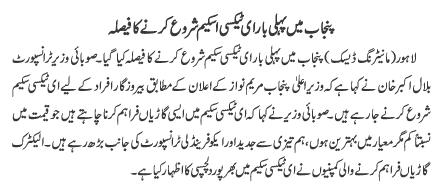 پنجاب میں پہلی بار ای ٹیکسی اسکیم شروع کرنے کا فیصلہ
لاہور (مانیٹرنگ ڈیسک) پنجاب میں پہلی بار ای ٹیکسی سکیم شروع کرنے کا فیصلہ کیا گیا۔ صوبائی وزیر ٹرانسپورٹ
بلال اکبر خان نے کہا ہے کہ وزیراعلیٰ پنجاب مریم نواز کے اعلان کے مطابق بیروزگار افراد کے لیے ای ٹیکسی سکیم
شروع کرنے جا رہے ہیں۔ صوبائی وزیر نے کہا کہ ای ٹیکسی سکیم میں ایسی گاڑیاں فراہم کرنا چاہتے ہیں جو قیمت میں
نسبتاً کم مگر معیار میں بہترین ہوں، ہم تیزی سے جدید اور ایکو فرینڈلی ٹرانسپورٹ کی جانب بڑھ رہے ہیں۔ الیکٹرک
گاڑیاں فراہم کرنے والی کمپنیوں نے ای ٹیکسی سکیم میں بھرپور دلچسپی کا اظہار کیا ہے۔